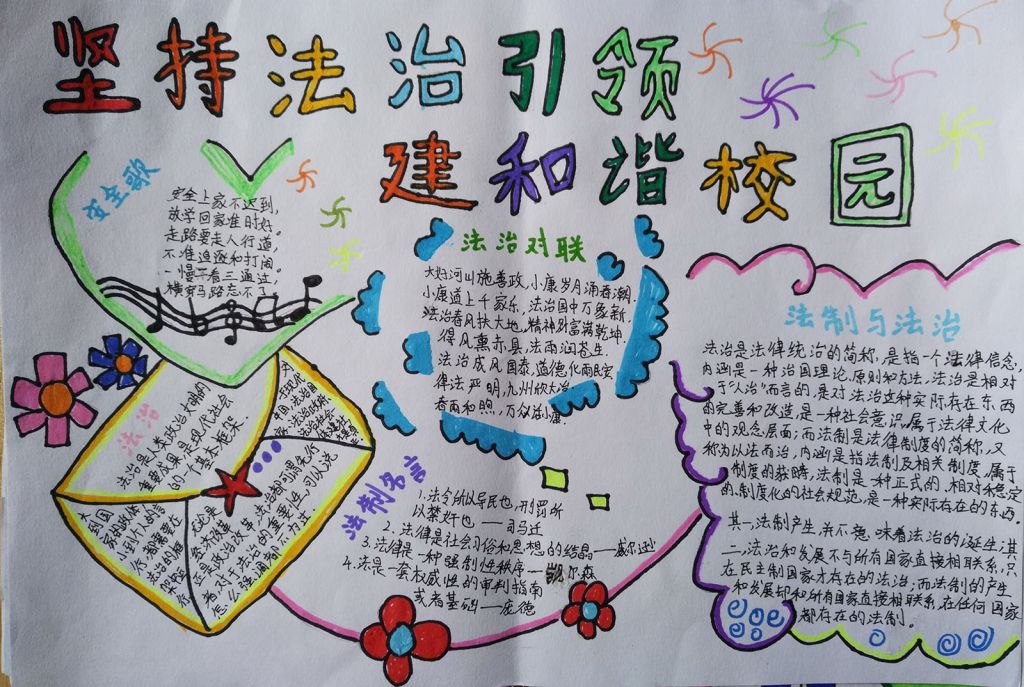 坚持法治引领
建和谐校园
安全歌
安全上家不迟到,
放学回家准时好。
走路要走人行道,
不准追逐和打闹。
一慢二看三通过,
横穿马路忘不了
法治对联
小康岁月涌春潮.
小康道上千家乐,法治国中万象新.
法治春风扶大地,精神财富满乾坤.
得风熏赤县,法雨润苍生.
法治成风国泰,道德化雨民安
律法严明,九州欣大治
春雨和煦,
法制与法治
法治是法律统治的简称,是指一个法律信念,
内涵是一种治国理论、原则和方法,法治是相对
于"人治"而言的,是对法治这种实际存在东西
的完善和改造,是一种社会意识,属于法律文化
中的观念层面;而法制是法律制度的简称,又
称为以法而治,内涵是指法制及相关制度,属于
制度的获畴,法制是一种正式的、相对稳定
的、制度化的社会规范,是一种实际存在的东西.
其一,法制产生并不意味着法治的诞生;其
二,法治和发展不与所有国家直接相联系,只
在民主制国家才存在的法治;而法制的产生
和发展却和所有国家直接相联系,在任何国家
都存在的法制。
法治
法治是人类政治文明的
重要成果,是现代社会
的一个基本框架.
大到国
家的政体
小到个人的言
行,都需要在
法治的框
架中运
行
对于现代
中国,法治国
无论是
经济改革
还是政治改革,法治都可谓先行
者,对于法治的重要性,可以说
怎么强调都不为过
法制名言
1.法令所以导民也,刑罚所
以禁奸也 — 司马迁
2.法律是社会习俗和思想的结晶—威尔逊
3.法律是一种强制性秩序—凯尔森
4.法是一套权威性的审判指南
或者基础—庞德